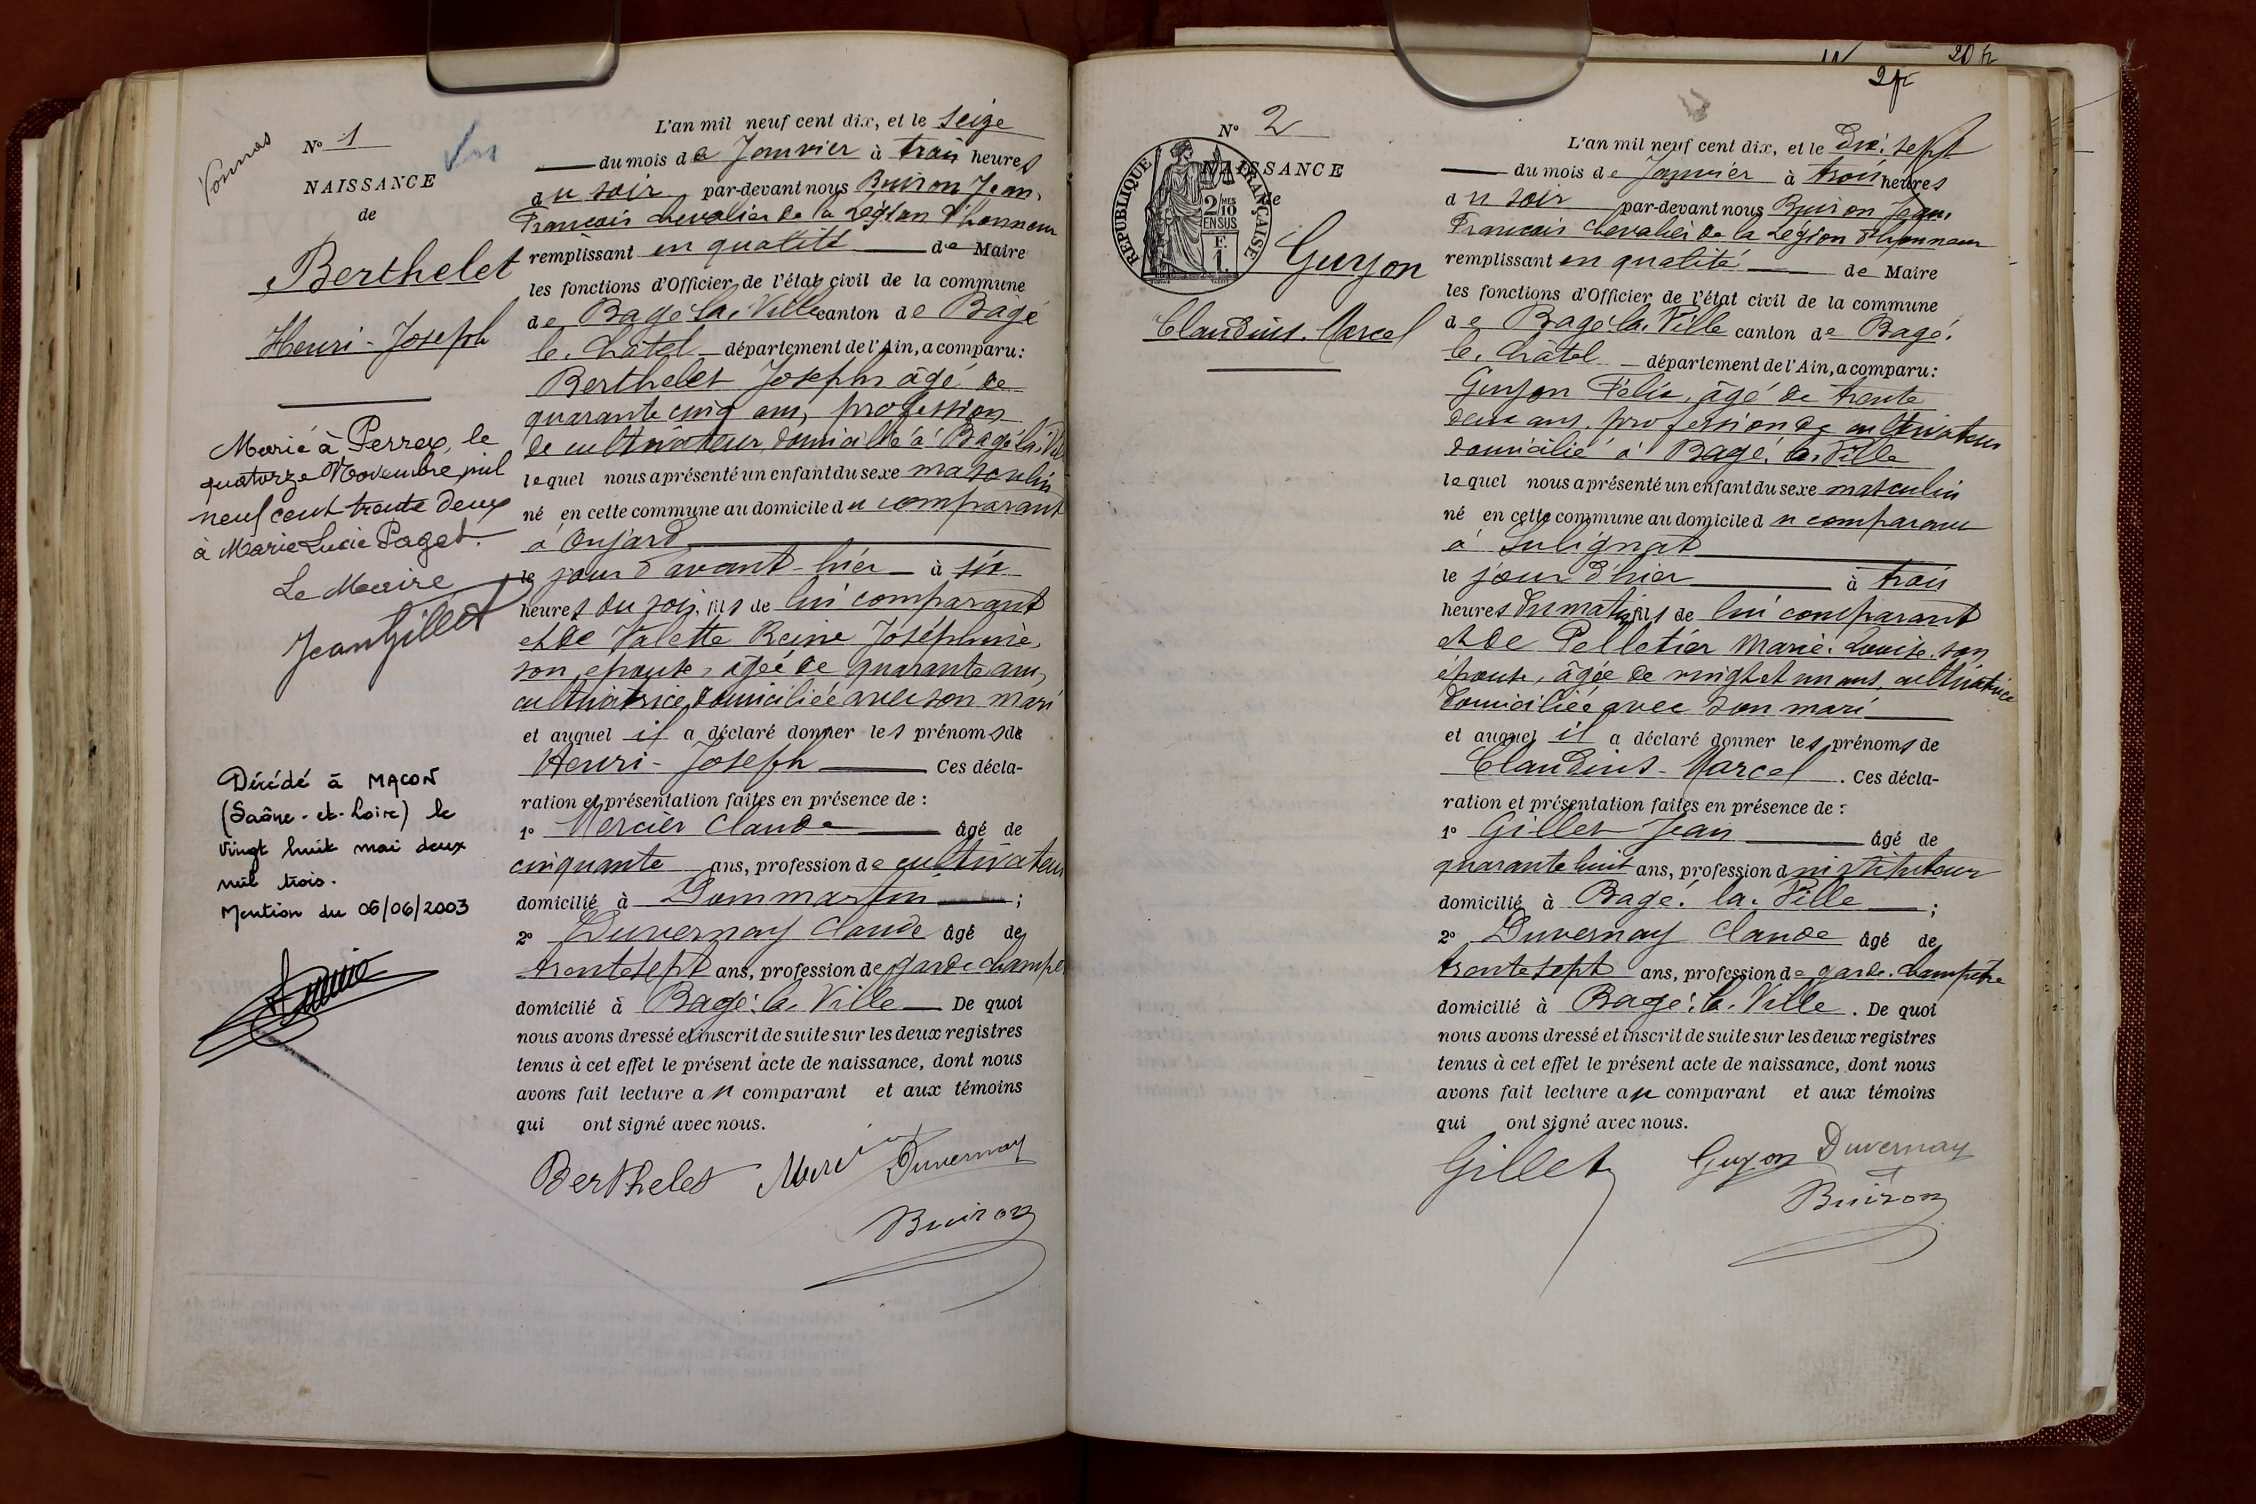 Vonnas
N° 1
Vu
NAISSANCE
de
Berthelet
Henri - Joseph
Marié à Perrex, le
quatorze Novembre mil
neuf cent trente deux
à Marie Lucie Paget.
Le Maire
Jean Gillet
Décédé à MACON
(Saône-et-Loire) le
vingt huit mai deux
mil trois.
Mention du 06/06/2003
L'an mil neuf cent dix, et le seize
du mois de Janvier à trois heures
du soir par-devant nous Buiron Jean,
Francois chevalier de la Légion d'honneur
remplissant en qualité de Maire
les fonctions d'Officier de l'état civil de la commune
de Bagé la Ville canton de Bagé
le Châtel département de l'Ain, a comparu:
Berthelet Joseph âgé de
quarante cinq ans, profession
de cultivateur domicilié à Bagé la Ville
lequel nous a présenté un enfant du sexe masculin
né en cette commune au domicile du comparant
à Onjard
le jour d'avant-hier à six
heures du soir, fils de lui comparant
et de Valette Reine Joséphine,
son épouse, âgée de quarante ans,
cultivatrice domiciliée avec son mari
et auquel il a déclaré donner les prénoms de
Henri - Joseph Ces décla-
ration et présentation faites en présence de :
1° Mercier Claude âgé de
cinquante ans, profession de cultivateur
domicilié à Dommartin ;
2° Duvernay Claude âgé de
trente sept ans, profession de garde champêtre
domicilié à Bagé la Ville De quoi
nous avons dressé et inscrit de suite sur les deux registres
tenus à cet effet le présent acte de naissance, dont nous
avons fait lecture au comparant et aux témoins
qui ont signé avec nous.
Berthelet Mercier Duvernay
Buiron
20 fr
2 fr
N° 2
NAISSANCE
de
RÉPUBLIQUE FRANÇAISE
2/10 MES
EN SUS
F.
1.
Guyon
Claudius. Marcel
L'an mil neuf cent dix, et le dix. sept
du mois de Janvier à trois heures
du soir par-devant nous Buiron Jean,
Francois chevalier de la Légion d'honneur
remplissant en qualité de Maire
les fonctions d'Officier de l'état civil de la commune
de Bagé la Ville canton de Bagé
le Châtel département de l'Ain, a comparu:
Guyon Félix, âgé de trente
deux ans, profession de cultivateur
domicilié à Bagé la Ville
lequel nous a présenté un enfant du sexe masculin
né en cette commune au domicile du comparant
à Sulignat
le jour d'hier à trois
heures du matin, fils de lui comparant
et de Pelletier Marie. Louise, son
épouse, âgée de vingt et un ans, cultivatrice
domiciliée avec son mari
et auquel il a déclaré donner les prénoms de
Claudius - Marcel . Ces décla-
ration et présentation faites en présence de :
1° Gillet Jean âgé de
quarante huit ans, profession d'instituteur
domicilié à Bagé la Ville ;
2° Duvernay Claude âgé de
trente sept ans, profession de garde. champêtre
domicilié à Bagé la Ville . De quoi
nous avons dressé et inscrit de suite sur les deux registres
tenus à cet effet le présent acte de naissance, dont nous
avons fait lecture au comparant et aux témoins
qui ont signé avec nous.
Gillet Guyon Duvernay
Buiron